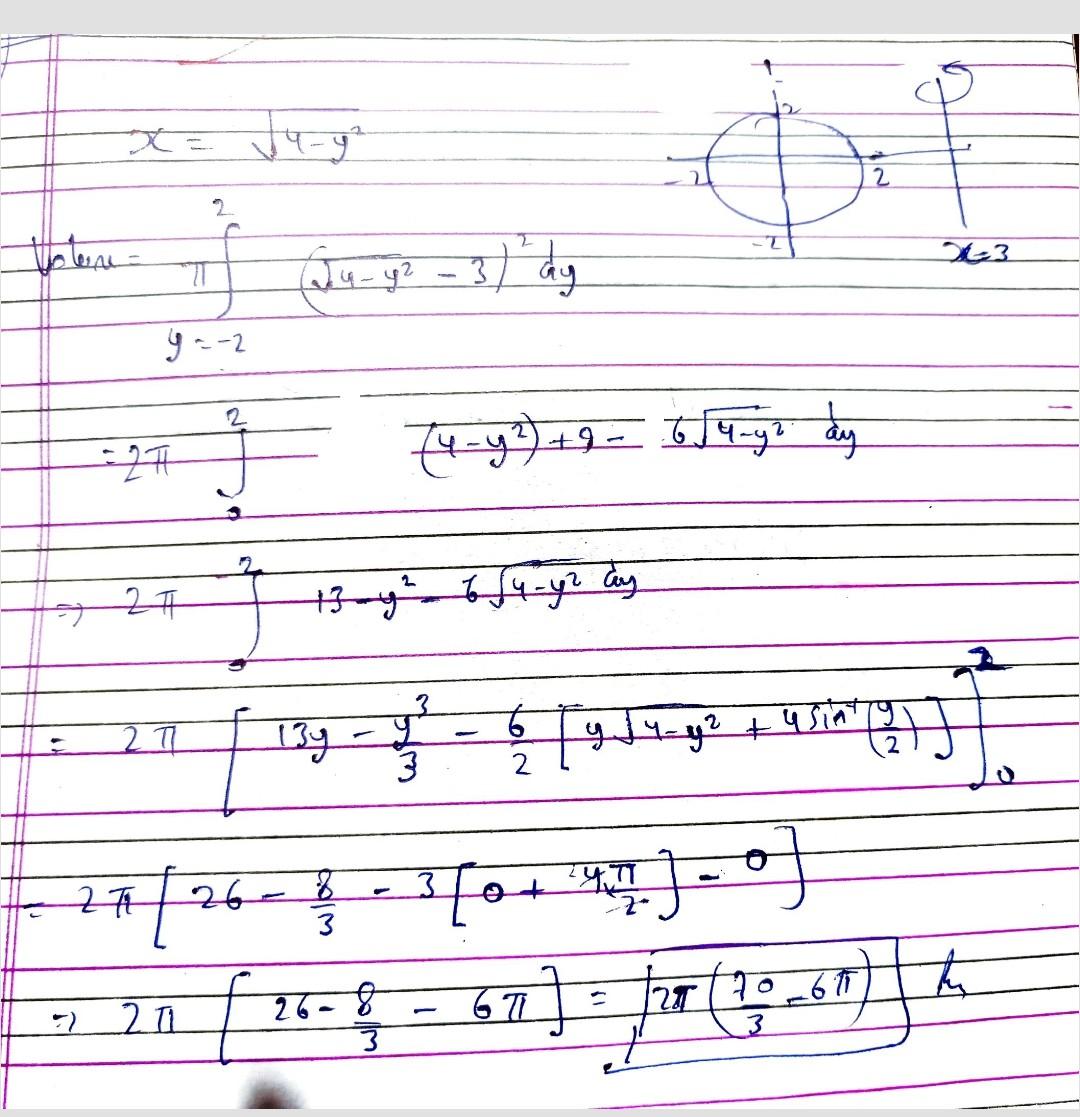 x = √4-y²
2
-2
2
-2
x=3
Volume = π ∫_{y=-2}^{2} (√4-y² - 3)² dy
= 2π ∫_0^2 (4-y²) + 9 - 6√4-y² dy
⇒ 2π ∫_0^2 13 - y² - 6√4-y² dy
= 2π [ 13y - y³/3 - 6/2 [ y√4-y² + 4 sin⁻¹(y/2) ] ]_0^2
= 2π [ 26 - 8/3 - 3 [ 0 + 4π/2 ] - 0 ]
⇒ 2π [ 26 - 8/3 - 6π ] = 2π (70/3 - 6π)